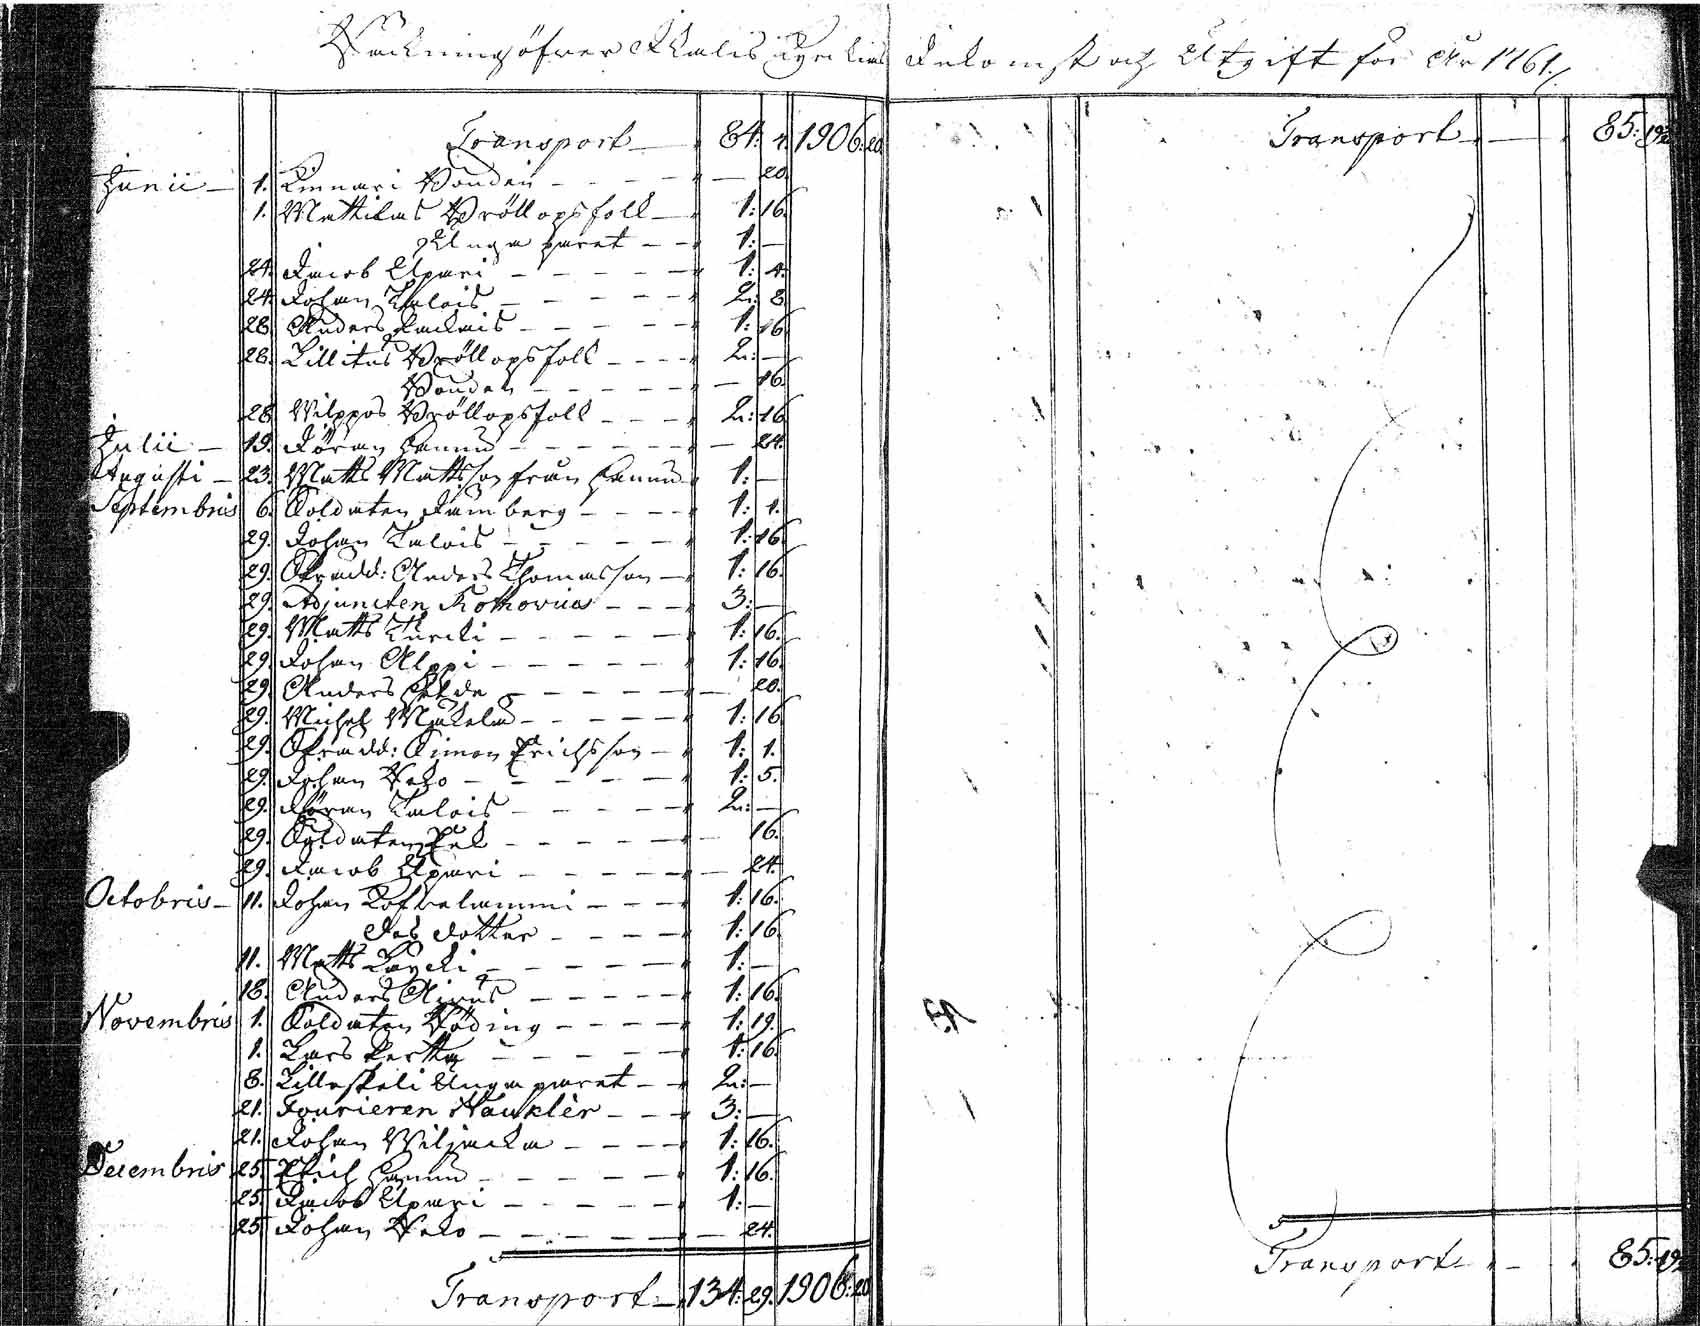 Räkning öfver Kkalis Kyrckias Inkomst och Utgift för År 1761./.
Transport — 84: 4. 1906: 20
Junii — 1. Kinnari Bonden — 20.
1. Mattilas Bröllopsfolk — 1: 16.
Unga paret — 1: —
24. Jacob Upari — 1: 4.
24. Johan Kalois — 2: 8.
28. Anders — 1: 16
28. Lillitus Bröllopsfolk — 2: —
Bonden — 16.
28. Wilppos Bröllopsfolk — 2: 16
Julii — 19. Jöran Hannu — 24.
Augusti — 23. Matts Mattsson från Hannu 1: —
Septembris 6. Soldaten Ramberg — 1: 1.
29. Johan Kalois — 1: 16
29. Skrädd: Anders Thomasson — 1: 16.
29. Adjuncten Rothovius — 3: —
29. Matts — 1: 16.
29. Johan Alppi — 1: 16.
29. Anders — 20.
29. Michel Mäkelä — 1: 16
29. Skrädd: Simon Erichsson — 1: 1.
29. Johan — 1: 5.
29. Jöran Kalois — 2: —
29. Soldaten — 16.
29. Jacob Upari — 24.
Octobris — 11. Johan — 1: 16.
Des dotter — 1: 16.
11. Matts — 1: —
18. Anders — 1: 16.
Novembris 1. Soldaten Röding — 1: 19.
1. Lars Pertty — 1: 16.
8. Lilleskeli Unga paret — 2: —
21. Fourieren Nauklèr — 3: —
21. Johan Wiljacka — 1: 16.
Decembris 25. Erich Hannu — 1: 16.
25. Jacob Upari — 1: —
25. Johan — 24.
Transport — 134: 29. 1906: 20
Transport — 85: 19
Transport — 85: 19